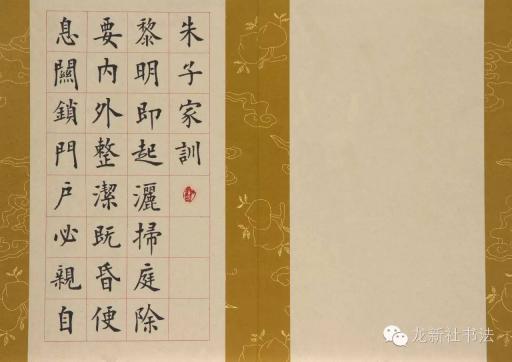 朱子家訓
黎明即起灑掃庭除
要内外整潔旣昏便
息關鎖門戶必親自
龙新社书法